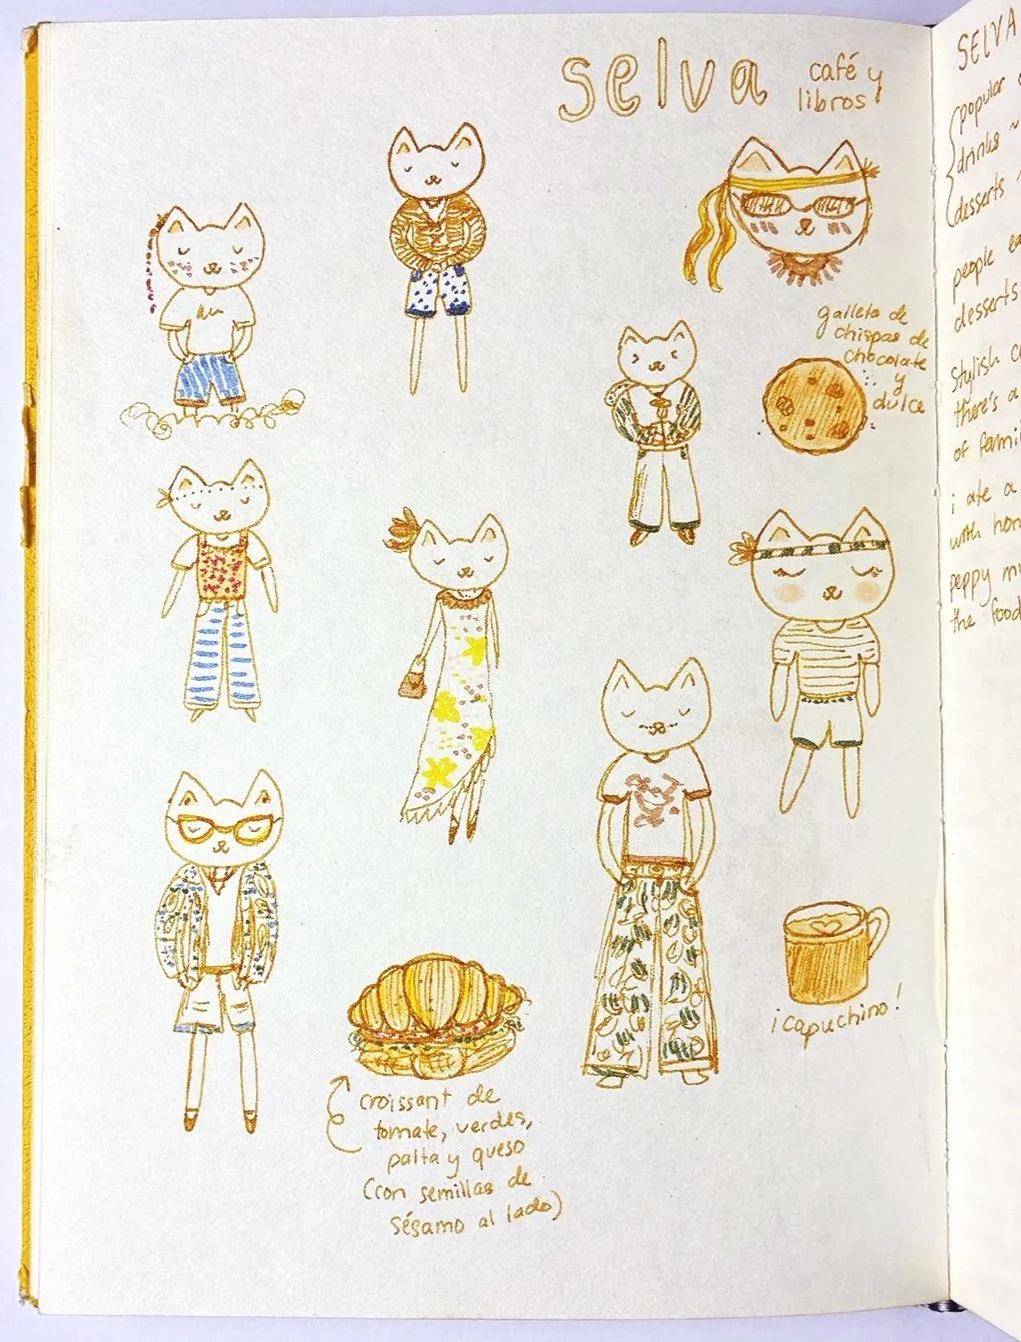 selva
café y
libros
galleta de
chispas de
chocolate
y
dulce
¡capuchino!
croissant de
tomate, verdes,
palta y queso
(con semillas de
sésamo al lado)
SELVA
popular
drinks ~
desserts
people
desserts
stylish
there's a
of
i ate a
with
peppy
the food